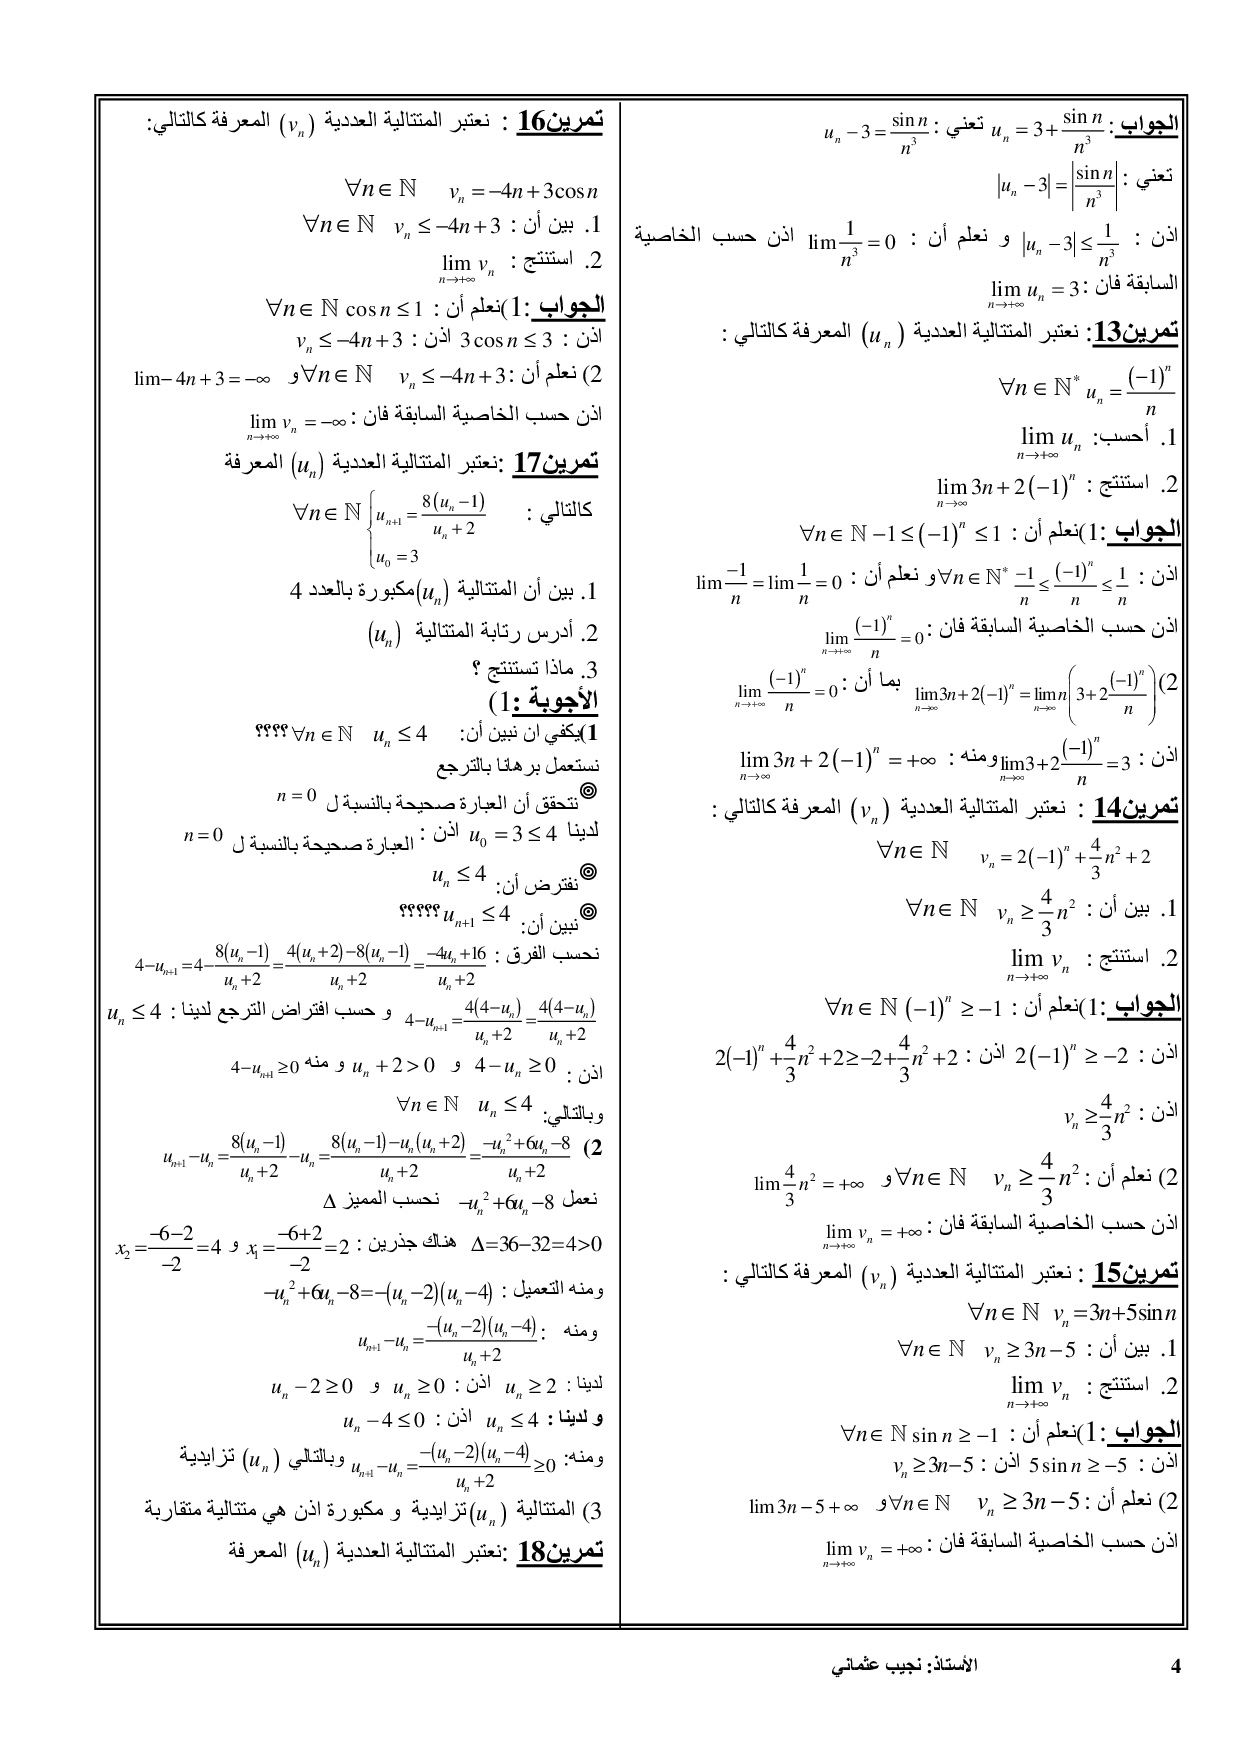 الجواب : $u_n = 3 + \frac{\sin n}{n^3}$ تعني : $u_n - 3 = \frac{\sin n}{n^3}$
تعني : $|u_n - 3| = \left|\frac{\sin n}{n^3}\right|$
اذن : $|u_n - 3| \le \frac{1}{n^3}$ و نعلم أن : $\lim \frac{1}{n^3} = 0$ اذن حسب الخاصية
السابقة فان : $\lim_{n \to +\infty} u_n = 3$
تمرين13: نعتبر المتتالية العددية $(u_n)$ المعرفة كالتالي :
$\forall n \in \mathbb{N}^*$ $u_n = \frac{(-1)^n}{n}$
1. أحسب: $\lim_{n \to +\infty} u_n$
2. استنتج : $\lim_{n \to \infty} 3n + 2(-1)^n$
الجواب :1)نعلم أن : $\forall n \in \mathbb{N}$ $-1 \le (-1)^n \le 1$
اذن : $\frac{-1}{n} \le \frac{(-1)^n}{n} \le \frac{1}{n}$ $\forall n \in \mathbb{N}^*$ و نعلم أن : $\lim \frac{-1}{n} = \lim \frac{1}{n} = 0$
اذن حسب الخاصية السابقة فان : $\lim_{n \to +\infty} \frac{(-1)^n}{n} = 0$
2) $\lim_{n \to \infty} 3n + 2(-1)^n = \lim_{n \to \infty} n\left(3 + 2\frac{(-1)^n}{n}\right)$ بما أن : $\lim_{n \to +\infty} \frac{(-1)^n}{n} = 0$
اذن : $\lim_{n \to \infty} 3 + 2\frac{(-1)^n}{n} = 3$ ومنه : $\lim_{n \to \infty} 3n + 2(-1)^n = +\infty$
تمرين14 : نعتبر المتتالية العددية $(v_n)$ المعرفة كالتالي :
$\forall n \in \mathbb{N}$ $v_n = 2(-1)^n + \frac{4}{3}n^2 + 2$
1. بين أن : $v_n \ge \frac{4}{3}n^2$ $\forall n \in \mathbb{N}$
2. استنتج : $\lim_{n \to +\infty} v_n$
الجواب :1)نعلم أن : $\forall n \in \mathbb{N}$ $(-1)^n \ge -1$
اذن : $2(-1)^n \ge -2$ اذن : $2(-1)^n + \frac{4}{3}n^2 + 2 \ge -2 + \frac{4}{3}n^2 + 2$
اذن : $v_n \ge \frac{4}{3}n^2$
2) نعلم أن : $v_n \ge \frac{4}{3}n^2$ $\forall n \in \mathbb{N}$ و $\lim \frac{4}{3}n^2 = +\infty$
اذن حسب الخاصية السابقة فان : $\lim_{n \to +\infty} v_n = +\infty$
تمرين15 : نعتبر المتتالية العددية $(v_n)$ المعرفة كالتالي :
$\forall n \in \mathbb{N}$ $v_n = 3n + 5\sin n$
1. بين أن : $v_n \ge 3n - 5$ $\forall n \in \mathbb{N}$
2. استنتج : $\lim_{n \to +\infty} v_n$
الجواب :1)نعلم أن : $\forall n \in \mathbb{N}$ $\sin n \ge -1$
اذن : $5\sin n \ge -5$ اذن : $v_n \ge 3n - 5$
2) نعلم أن : $v_n \ge 3n - 5$ $\forall n \in \mathbb{N}$ و $\lim 3n - 5 + \infty$
اذن حسب الخاصية السابقة فان : $\lim_{n \to +\infty} v_n = +\infty$
تمرين16 : نعتبر المتتالية العددية $(v_n)$ المعرفة كالتالي:
$\forall n \in \mathbb{N}$ $v_n = -4n + 3\cos n$
1. بين أن : $v_n \le -4n + 3$ $\forall n \in \mathbb{N}$
2. استنتج : $\lim_{n \to +\infty} v_n$
الجواب :1)نعلم أن : $\forall n \in \mathbb{N}$ $\cos n \le 1$
اذن : $3\cos n \le 3$ اذن : $v_n \le -4n + 3$
2) نعلم أن : $v_n \le -4n + 3$ $\forall n \in \mathbb{N}$ و $\lim -4n + 3 = -\infty$
اذن حسب الخاصية السابقة فان : $\lim_{n \to +\infty} v_n = -\infty$
تمرين17 :نعتبر المتتالية العددية $(u_n)$ المعرفة
كالتالي : $\forall n \in \mathbb{N}$ $\begin{cases} u_{n+1} = \frac{8(u_n - 1)}{u_n + 2} \\ u_0 = 3 \end{cases}$
1. بين أن المتتالية $(u_n)$ مكبورة بالعدد 4
2. أدرس رتابة المتتالية $(u_n)$
3. ماذا تستنتج ؟
الأجوبة :1)
1)يكفي ان نبين أن: $u_n \le 4$ $\forall n \in \mathbb{N}$ ؟؟؟؟
نستعمل برهانا بالترجع
◎نتحقق أن العبارة صحيحة بالنسبة ل $n = 0$
لدينا $u_0 = 3 \le 4$ اذن : العبارة صحيحة بالنسبة ل $n = 0$
◎نفترض أن: $u_n \le 4$
◎نبين أن: $u_{n+1} \le 4$ ؟؟؟؟؟
نحسب الفرق : $4 - u_{n+1} = 4 - \frac{8(u_n - 1)}{u_n + 2} = \frac{4(u_n + 2) - 8(u_n - 1)}{u_n + 2} = \frac{-4u_n + 16}{u_n + 2}$
$4 - u_{n+1} = \frac{4(4 - u_n)}{u_n + 2} = \frac{4(4 - u_n)}{u_n + 2}$ و حسب افتراض الترجع لدينا : $u_n \le 4$
اذن : $4 - u_n \ge 0$ و $u_n + 2 > 0$ و منه $4 - u_{n+1} \ge 0$
وبالتالي: $u_n \le 4$ $\forall n \in \mathbb{N}$
2) $u_{n+1} - u_n = \frac{8(u_n - 1)}{u_n + 2} - u_n = \frac{8(u_n - 1) - u_n(u_n + 2)}{u_n + 2} = \frac{-u_n^2 + 6u_n - 8}{u_n + 2}$
نعمل $-u_n^2 + 6u_n - 8$ نحسب المميز $\Delta$
$\Delta = 36 - 32 = 4 > 0$ هناك جذرين : $x_1 = \frac{-6 + 2}{-2} = 2$ و $x_2 = \frac{-6 - 2}{-2} = 4$
ومنه التعميل : $-u_n^2 + 6u_n - 8 = -(u_n - 2)(u_n - 4)$
ومنه : $u_{n+1} - u_n = \frac{-(u_n - 2)(u_n - 4)}{u_n + 2}$
لدينا : $u_n \ge 2$ اذن : $u_n \ge 0$ و $u_n - 2 \ge 0$
و لدينا : $u_n \le 4$ اذن : $u_n - 4 \le 0$
ومنه: $u_{n+1} - u_n = \frac{-(u_n - 2)(u_n - 4)}{u_n + 2} \ge 0$ وبالتالي $(u_n)$ تزايدية
3) المتتالية $(u_n)$ تزايدية و مكبورة اذن هي متتالية متقاربة
تمرين18 :نعتبر المتتالية العددية $(u_n)$ المعرفة
الأستاذ: نجيب عثماني
4